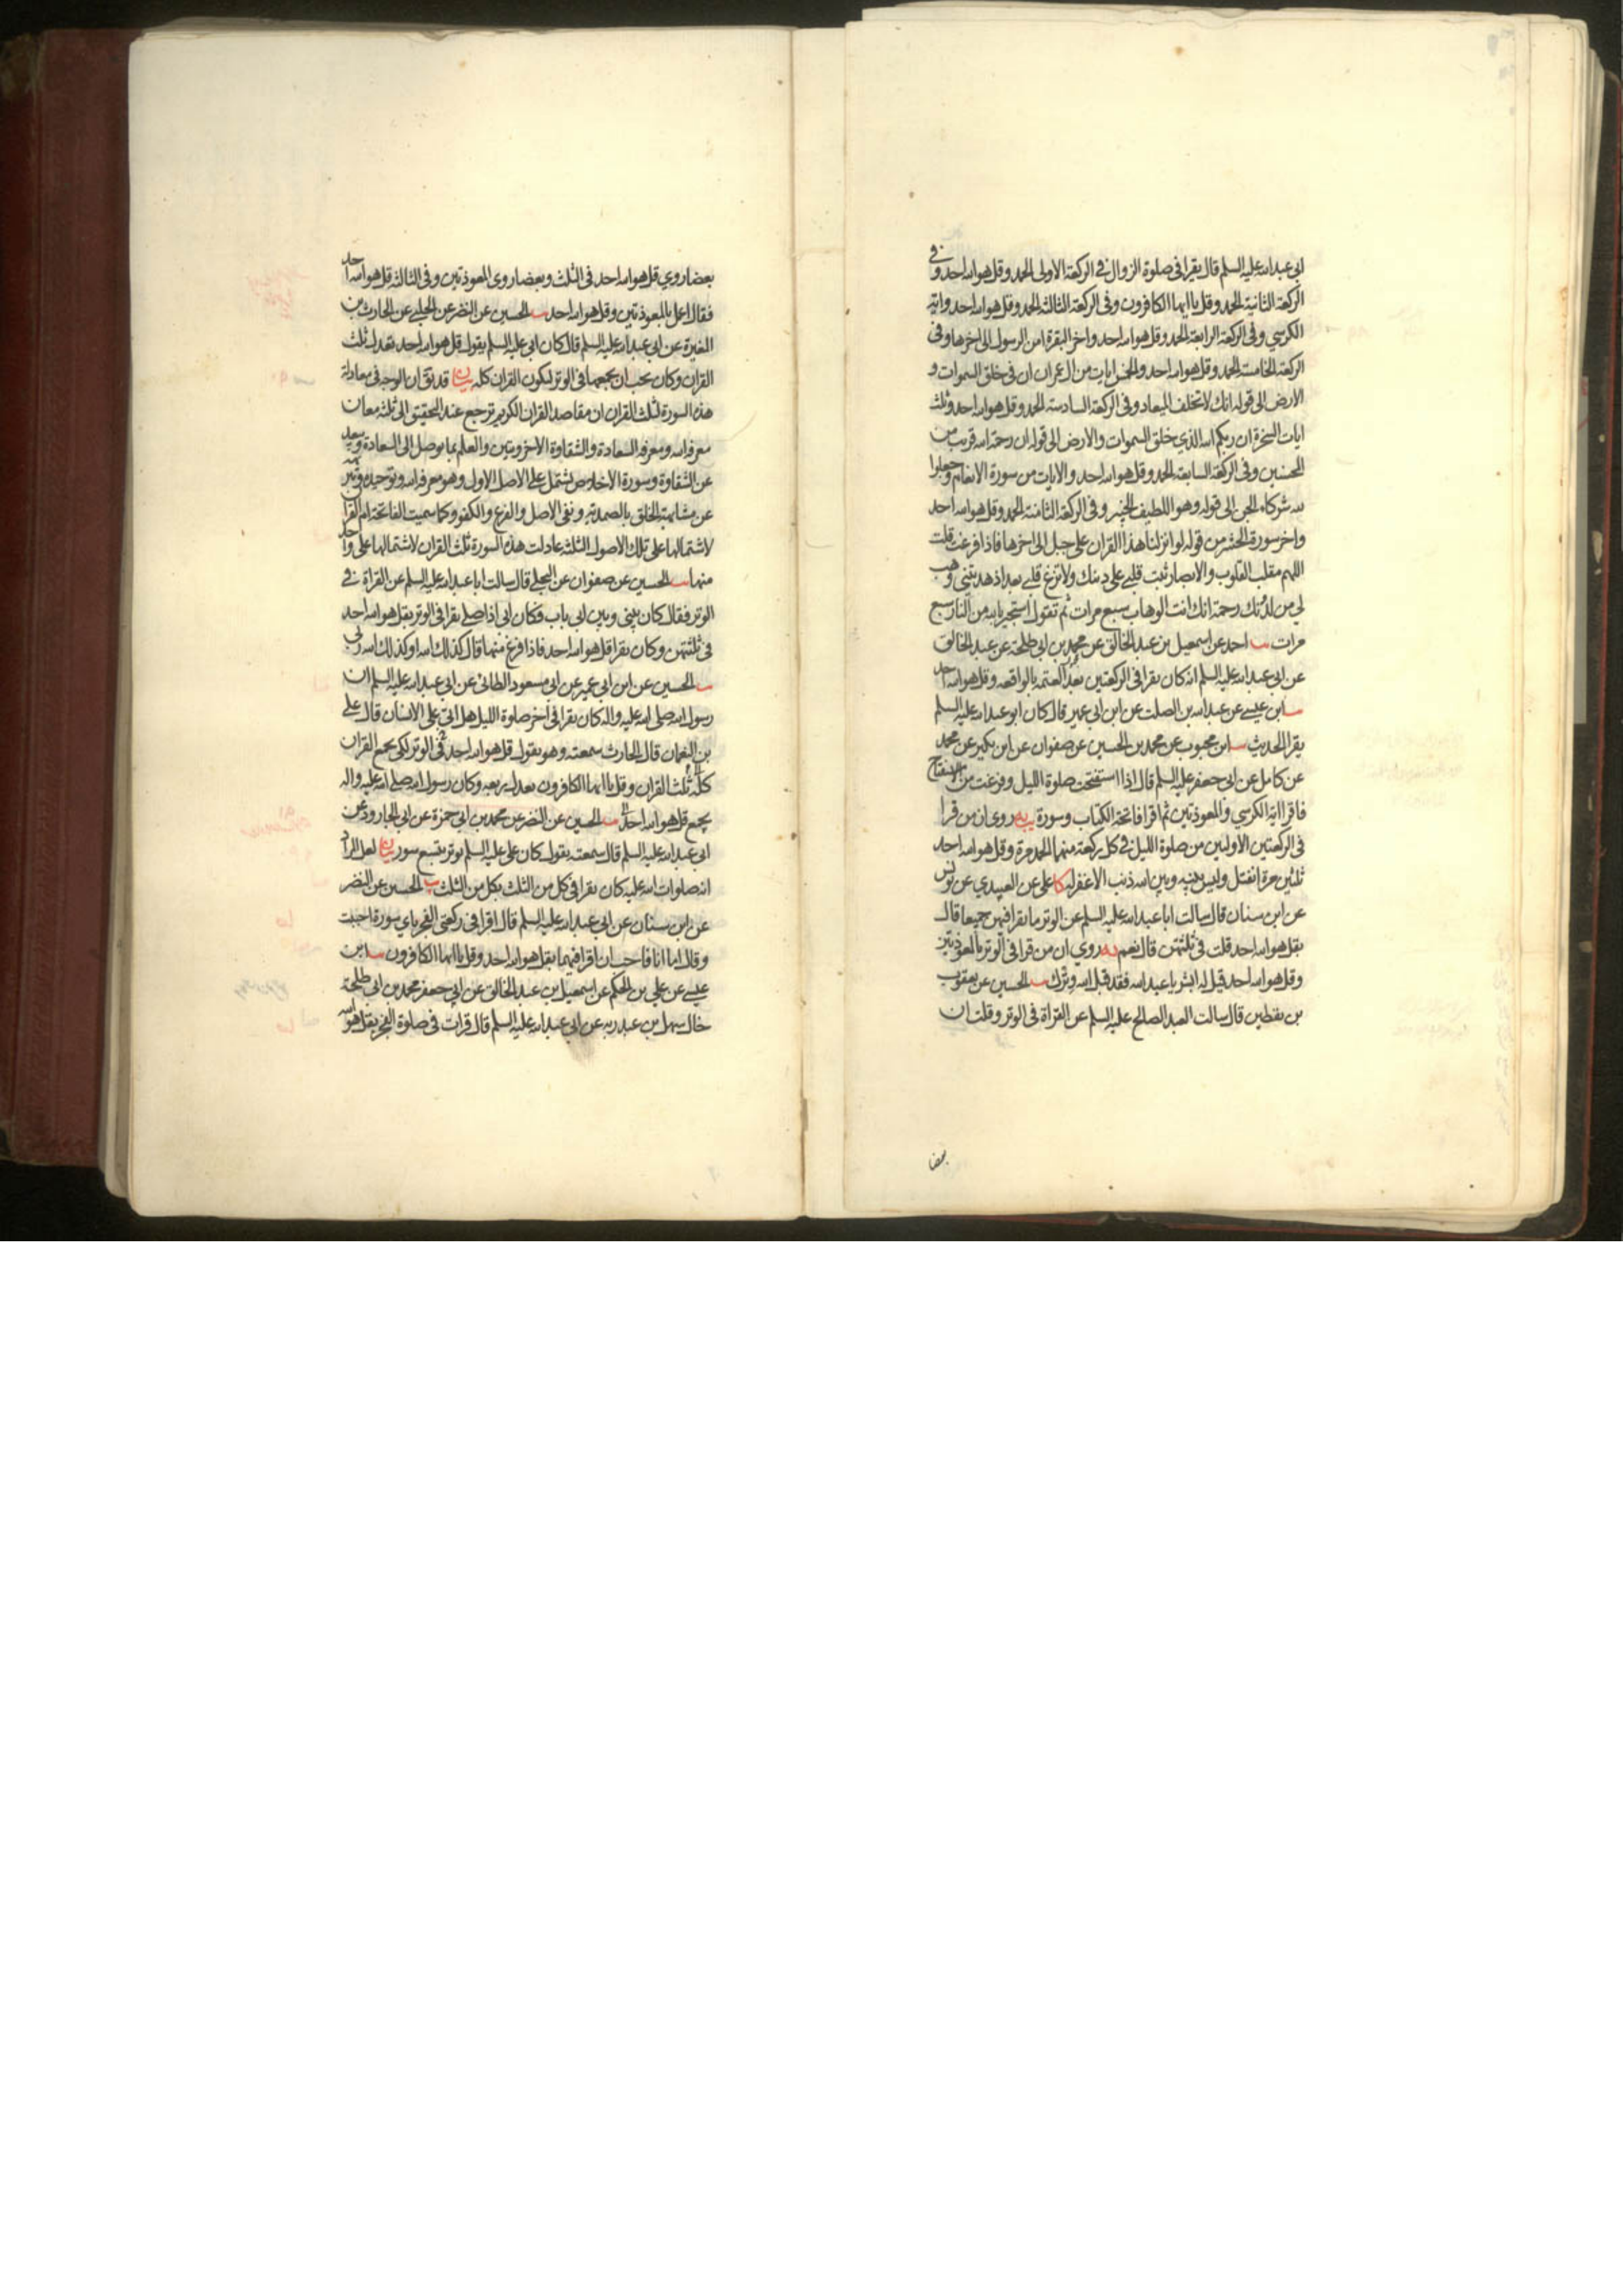 ابي عبدالله عليه السلم قال يقرا في صلوة الزوال في الركعة الاولى الحمد وقل هو الله احد وفي
الركعة الثانية الحمد وقل يا ايها الكافرون وفي الركعة الثالثة الحمد وقل هو الله احد واية
الكرسي وفي الركعة الرابعة الحمد وقل هو الله احد واخر البقرة امن الرسول الى اخرها وفي
الركعة الخامسة الحمد وقل هو الله احد والخمس ايات من ال عمران ان في خلق السموات و
الارض الى قوله انك لا تخلف الميعاد وفي الركعة السادسة الحمد وقل هو الله احد وثلث
ايات السخرة ان ربكم الله الذي خلق السموات والارض الى قوله ان رحمة الله قريب من
المحسنين وفي الركعة السابعة الحمد وقل هو الله احد والايات من سورة الانعام وجعلوا
لله شركاء الجن الى قوله وهو اللطيف الخبير وفي الركعة الثامنة الحمد وقل هو الله احد
واخر سورة الحشر من قوله لو انزلنا هذا القران على جبل الى اخرها فاذا فرغت قلت
اللهم مقلب القلوب والابصار ثبت قلبي على دينك ولا تزغ قلبي بعد اذ هديتني وهب
لي من لدنك رحمة انك انت الوهاب سبع مرات ثم تقول استجير بالله من النار سبع
مرات يب احمد عن اسمعيل بن عبد الخالق عن محمد بن ابي طلحة عن عبد الخالق
عن ابي عبدالله عليه السلم انه كان يقرا في الركعتين بعد العتمة بالواقعة وقل هو الله احد
يب ابن عيسى عن عبدالله بن الصلت عن ابن ابي عمير قال كان ابو عبدالله عليه السلم
يقرا الحديث يب ابن محبوب عن محمد بن الحسين عن صفوان عن ابن بكير عن محمد
عن كامل عن ابي جعفر عليه السلم قال اذا استفتحت صلوة الليل وفرغت من الاستفتاح
فاقرا اية الكرسي والمعوذتين ثم اقرا فاتحة الكتاب وسورة يه روي ان من قرا
في الركعتين الاوليين من صلوة الليل في كل ركعة منهما الحمد مرة وقل هو الله احد
ثلثين مرة انفتل وليس بينه وبين الله ذنب الا غفر له كا علي عن العبيدي عن يونس
عن ابن سنان قال سالت ابا عبدالله عليه السلم عن الوتر ما يقرا فيهن جميعا قال
بقل هو الله احد قلت في ثلثتهن قال نعم يه روي ان من قرا في الوتر بالمعوذتين
وقل هو الله احد قيل له ابشر يا عبدالله فقد قبل الله وترك يب الحسين عن يعقوب
بن يقطين قال سالت العبد الصالح عليه السلم عن القراة في الوتر وقلت ان
بعضا
بعضا روي قل هو الله احد في الثلث وبعضا روى المعوذتين وفي الثالثة قل هو الله احد
فقال اعمل بالمعوذتين وقل هو الله احد يب الحسين عن النضر عن الحلبي عن الحارث بن
المغيرة عن ابي عبدالله عليه السلم قال كان ابي عليه السلم يقول قل هو الله احد تعدل ثلث
القران وكان يحب ان يجمعها في الوتر ليكون القران كله بيان قد يق ان الوجه في معادلة
هذه السورة لثلث القران ان مقاصد القران الكريم ترجع عند التحقيق الى ثلثة معان
معرفة الله ومعرفة السعادة والشقاوة الاخرويتين والعلم بما يوصل الى السعادة ويبعد
عن الشقاوة وسورة الاخلاص تشتمل على الاصل الاول وهو معرفة الله وتوحيده وتنزيهه
عن مشابهة الخلق بالصمدية ونفي الاصل والفرع والكفو وكما سميت الفاتحة ام القران
لاشتمالها على تلك الاصول الثلثة عادلت هذه السورة ثلث القران لاشتمالها على واحد
منها يب الحسين عن صفوان عن البجلي قال سالت ابا عبدالله عليه السلم عن القراة في
الوتر فقال كان بيني وبين ابي باب فكان ابي اذا صلى يقرا في الوتر بقل هو الله احد
في ثلثتهن وكان يقرا قل هو الله احد فاذا فرغ منها قال كذلك الله او كذلك الله ربي
يب الحسين عن ابن ابي عمير عن ابي مسعود الطائي عن ابي عبدالله عليه السلم ان
رسول الله صلى الله عليه واله كان يقرا في اخر صلوة الليل هل اتى على الانسان قال علي
بن النعمان قال الحارث سمعته وهو يقول قل هو الله احد في الوتر لكي يجمع القران
كله ثلث القران وقل يا ايها الكافرون تعدل ربعه وكان رسول الله صلى الله عليه واله
يجمع قل هو الله احد يب الحسين عن النضر عن محمد بن ابي حمزة عن ابي الجارود عن
ابي عبدالله عليه السلم قال سمعته يقول كان علي عليه السلم يوتر بتسع سور بيان لعل المراد
انه صلوات الله عليه كان يقرا في كل من الثلث بكل من الثلث يب الحسين عن النضر
عن ابن سنان عن ابي عبدالله عليه السلم قال اقرا في ركعتي الفجر باي سورة احببت
وقال اما انا فاحب ان اقرا فيهما بقل هو الله احد وقل يا ايها الكافرون يب ابن
عيسى عن علي بن الحكم عن اسمعيل بن عبد الخالق عن ابي جعفر محمد بن ابي طلحة
خال سهل بن عبد ربه عن ابي عبدالله عليه السلم قال قرات في صلوة الفجر بقل هو الله